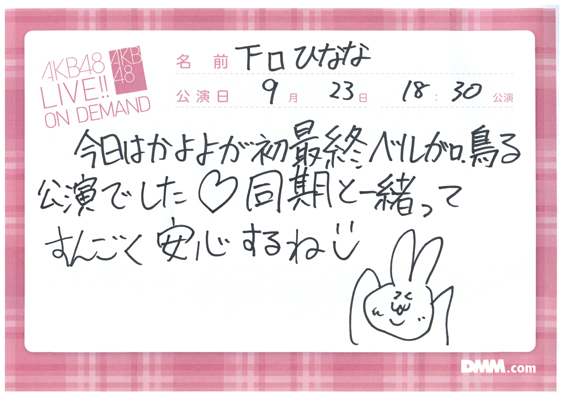 AKB48
LIVE!!
ON DEMAND
AKB
48
名前 下口ひなな
公演日 9月 23日 18:30 公演
今日はかよよが初最終ベルが鳴る
公演でした♡同期と一緒って
すんごく安心するね
DMM.com